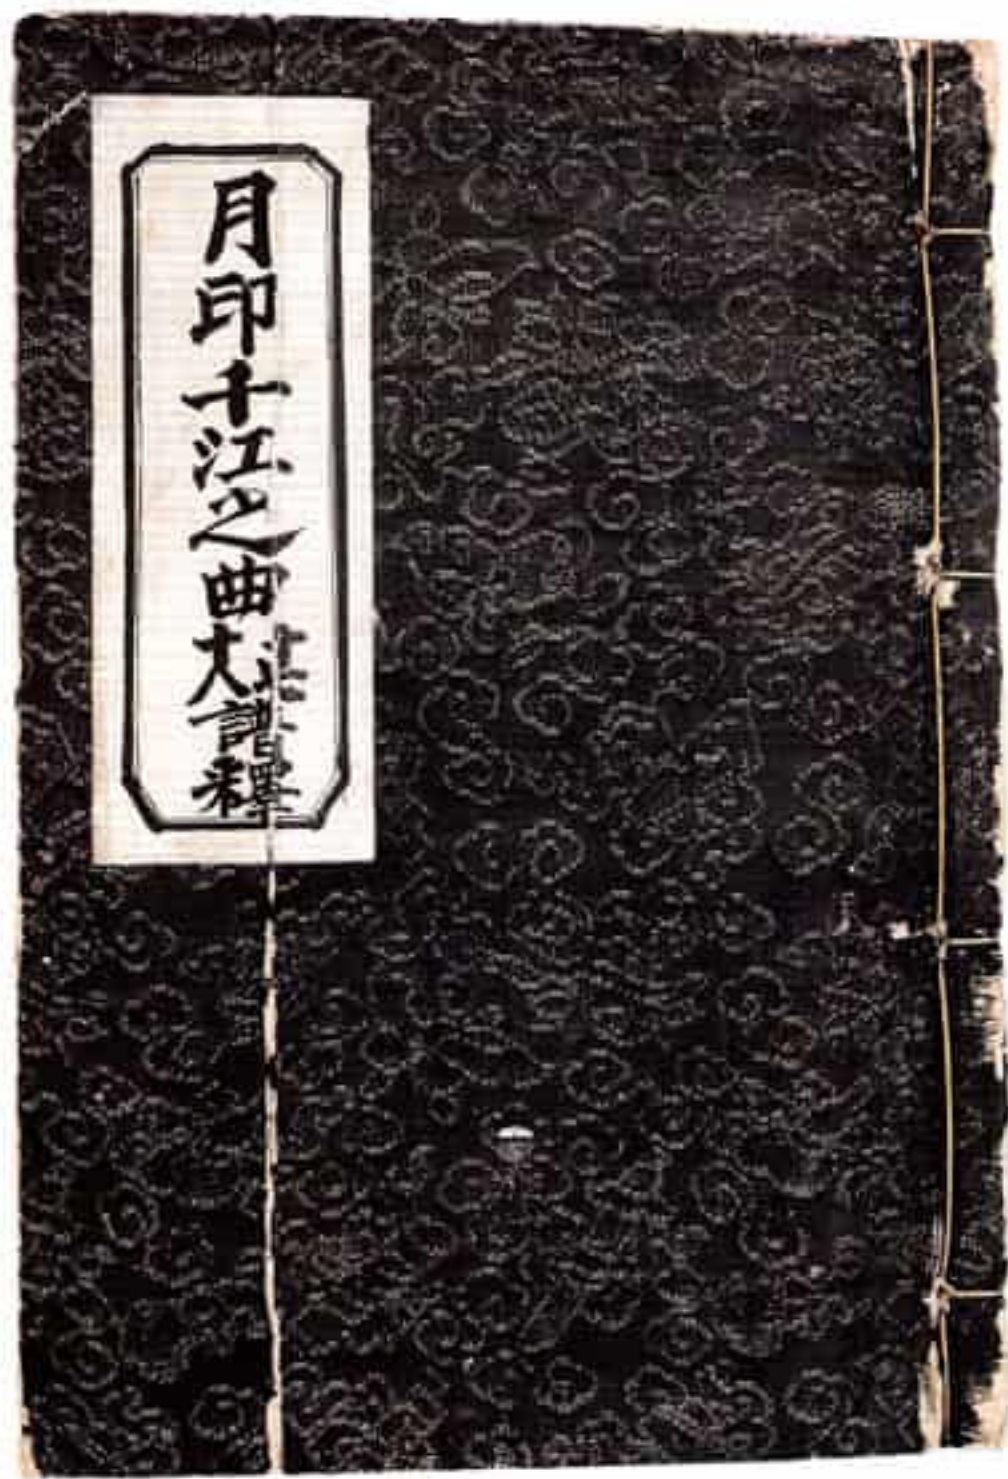 月印千江之曲 譜釋